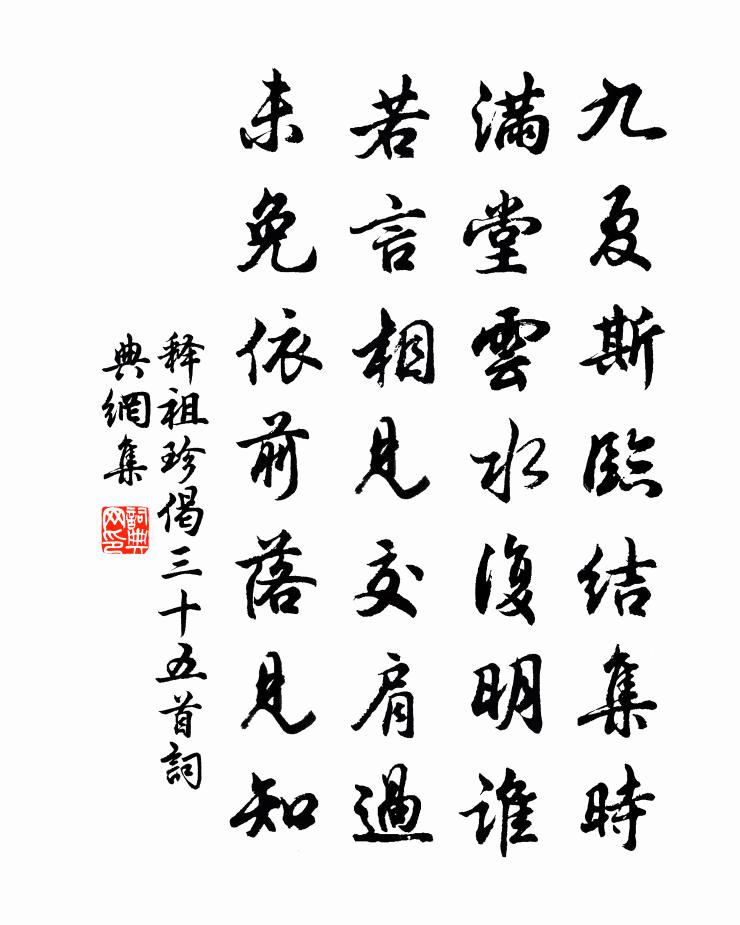 九夏斯臨結集時
滿堂雲水復明誰
若言相見交肩過
未免依前落見知
釋祖珍偈三十五首詞
典網集
詞典
网印